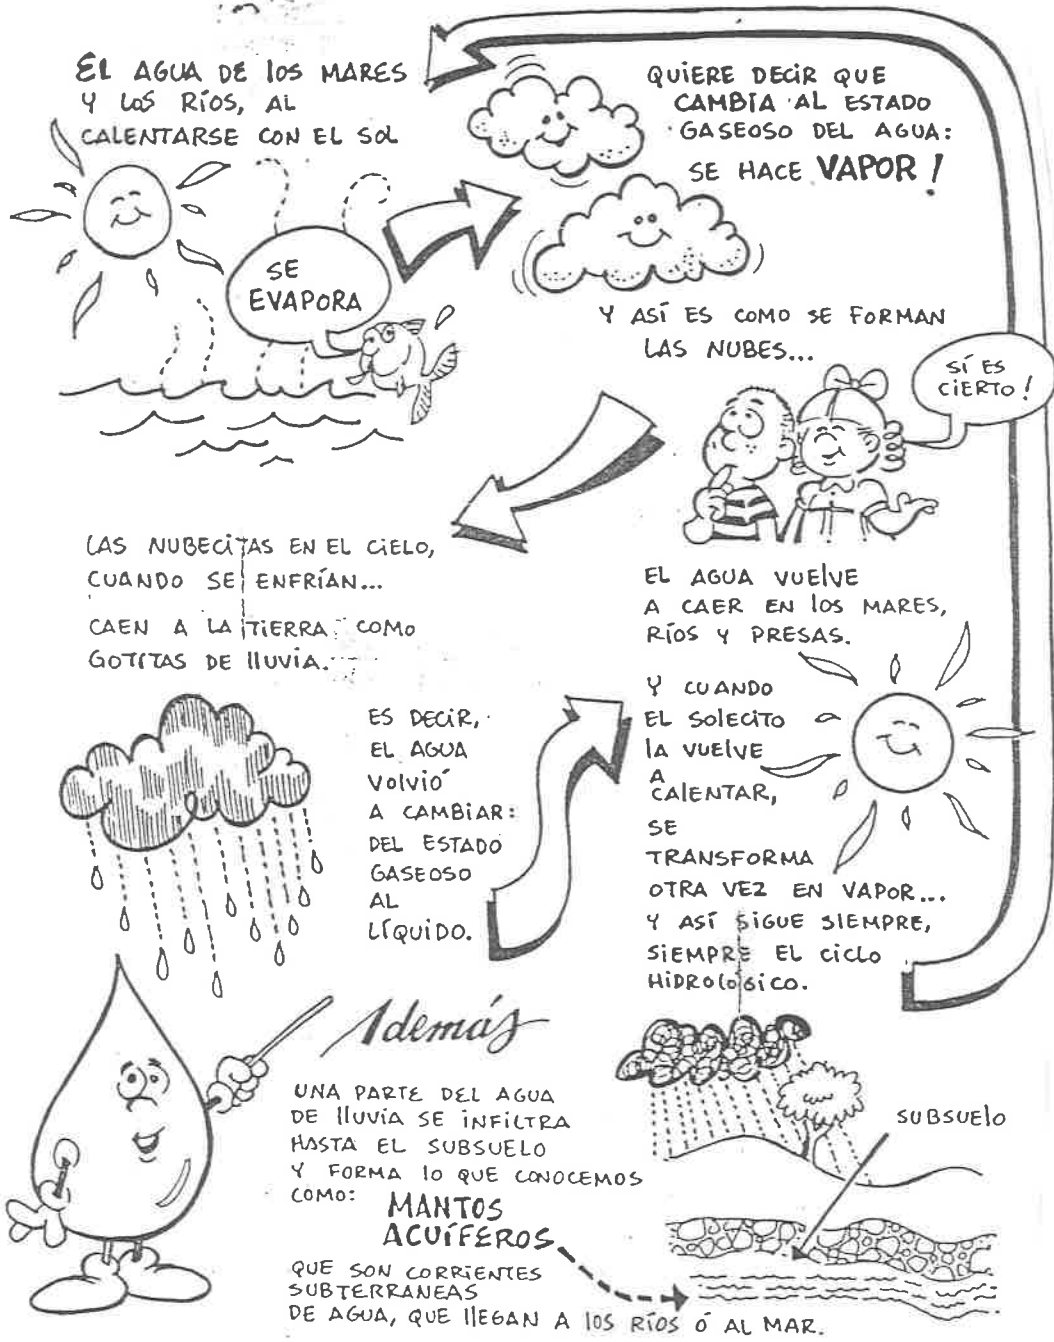 EL AGUA DE LOS MARES
Y LOS RÍOS, AL
CALENTARSE CON EL SOL
SE
EVAPORA
QUIERE DECIR QUE
CAMBIA AL ESTADO
GASEOSO DEL AGUA:
SE HACE VAPOR!
Y ASÍ ES COMO SE FORMAN
LAS NUBES...
SÍ ES
CIERTO!
LAS NUBECITAS EN EL CIELO,
CUANDO SE ENFRÍAN...
CAEN A LA TIERRA COMO
GOTITAS DE LLUVIA.
ES DECIR,
EL AGUA
VOLVIÓ
A CAMBIAR:
DEL ESTADO
GASEOSO
AL
LÍQUIDO.
EL AGUA VUELVE
A CAER EN LOS MARES,
RÍOS Y PRESAS.
Y CUANDO
EL SOLECITO
LA VUELVE
A
CALENTAR,
SE
TRANSFORMA
OTRA VEZ EN VAPOR...
Y ASÍ SIGUE SIEMPRE,
SIEMPRE EL CICLO
HIDROLÓGICO.
Además
UNA PARTE DEL AGUA
DE LLUVIA SE INFILTRA
HASTA EL SUBSUELO
Y FORMA LO QUE CONOCEMOS
COMO: MANTOS
ACUÍFEROS
QUE SON CORRIENTES
SUBTERRANEAS
DE AGUA, QUE LLEGAN A LOS RÍOS Ó AL MAR.
SUBSUELO